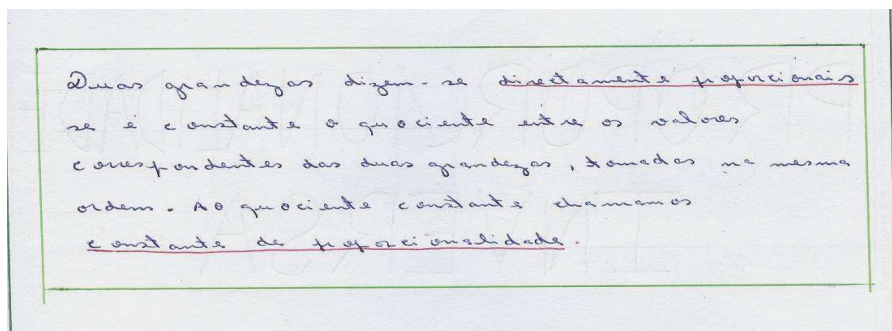 Duas grandezas dizem-se directamente proporcionais
se é constante o quociente entre os valores
correspondentes das duas grandezas, tomadas na mesma
ordem. Ao quociente constante chamamos
constante de proporcionalidade.